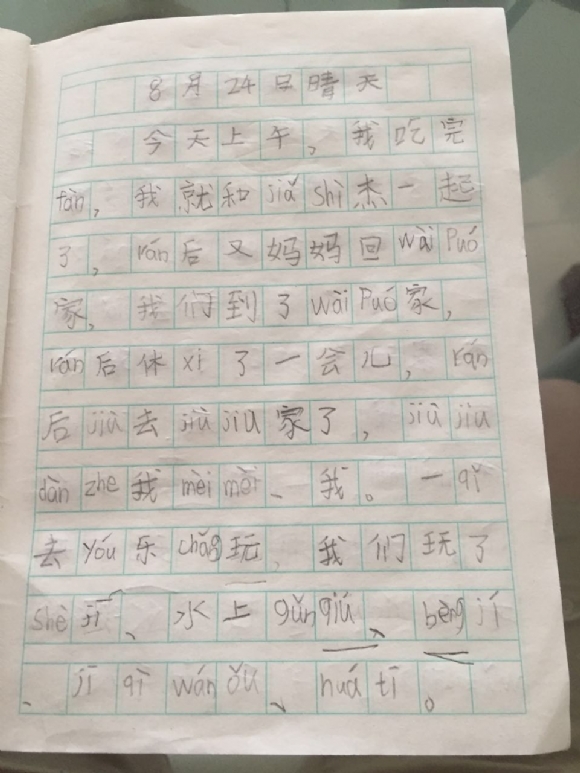 8月24日晴天
今天上午,我吃完
fàn,我就和jiǎ shì杰一起
了,rán后又妈妈回wài Puó
家,我们到了wài Puó家,
rán后休xi了一会儿,rán
后jiù去jiù jiu家了,jiū jiu
dàn zhe我mèi mèi、我。一qǐ
去yóu乐chǎg玩,我们玩了
shè jī、水上gǔn qiú、bèng jí
、jī qì wán ǒu、huá tī。